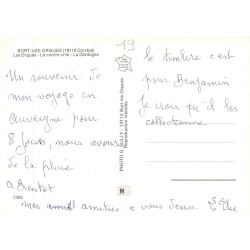 BORT-LES-ORGUES (19110 Corrèze)
Les Orgues - Le centre ville - La Dordogne
19
Un souvenir de
mon voyage en
auvergne pour
8 jours, nous avons
de la pluie
a Bientot
le timbre c'est
pour Benjamin
Je crois qu'il les
collectionne
mes amitiés a vous deux
PHOTO G. SULLY - 19110 Bort-les-Orgues
Reproduction interdite